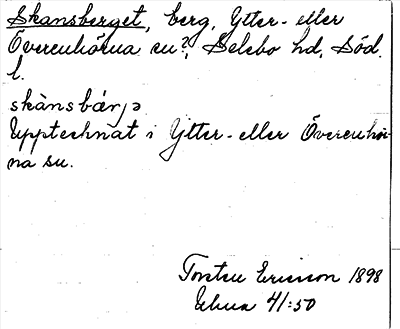 Skansberget, berg, Ytter- eller
Överenhörna sn?, Selebo hd, Söd.
l.
skànsbárjə
Upptecknat i Ytter- eller Överenhör-
na sn.
Torsten Ericsson 1898
Elua 41:50